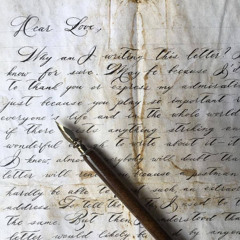 Dear Love,
Why am I writing this letter? I
know for sure. May be because I'd
to thank you or express my admiration
just because you play so important
everyone's life and in the whole world
if there anything striking and
wonderful to write about it
I know, almost everybody will doubt that
letter will
hardly be able to such an
address. To tell the I had to
the same. But then I understood that
letter would likely be any